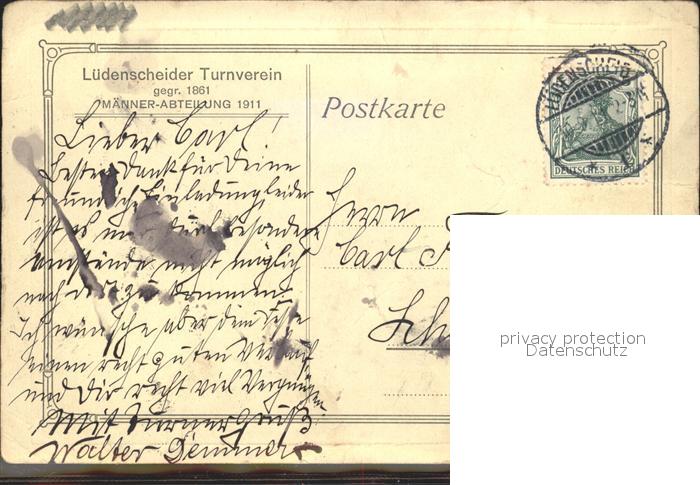 Lüdenscheider Turnverein
gegr. 1861
MÄNNER-ABTEILUNG 1911
Postkarte
LÜDENSCHEID
DEUTSCHES REICH
Lieber Carl!
Besten Dank für Deine
freundliche Einladung, leider
ist es mir durch besondere
Umstände nicht möglich
nach dort zu kommen
Ich wünsche aber dem Feste
einen recht guten Verlauf
und Dir recht viel Vergnügen
Mit Turnergruß
Walter
Herrn
Carl
privacy protection
Datenschutz